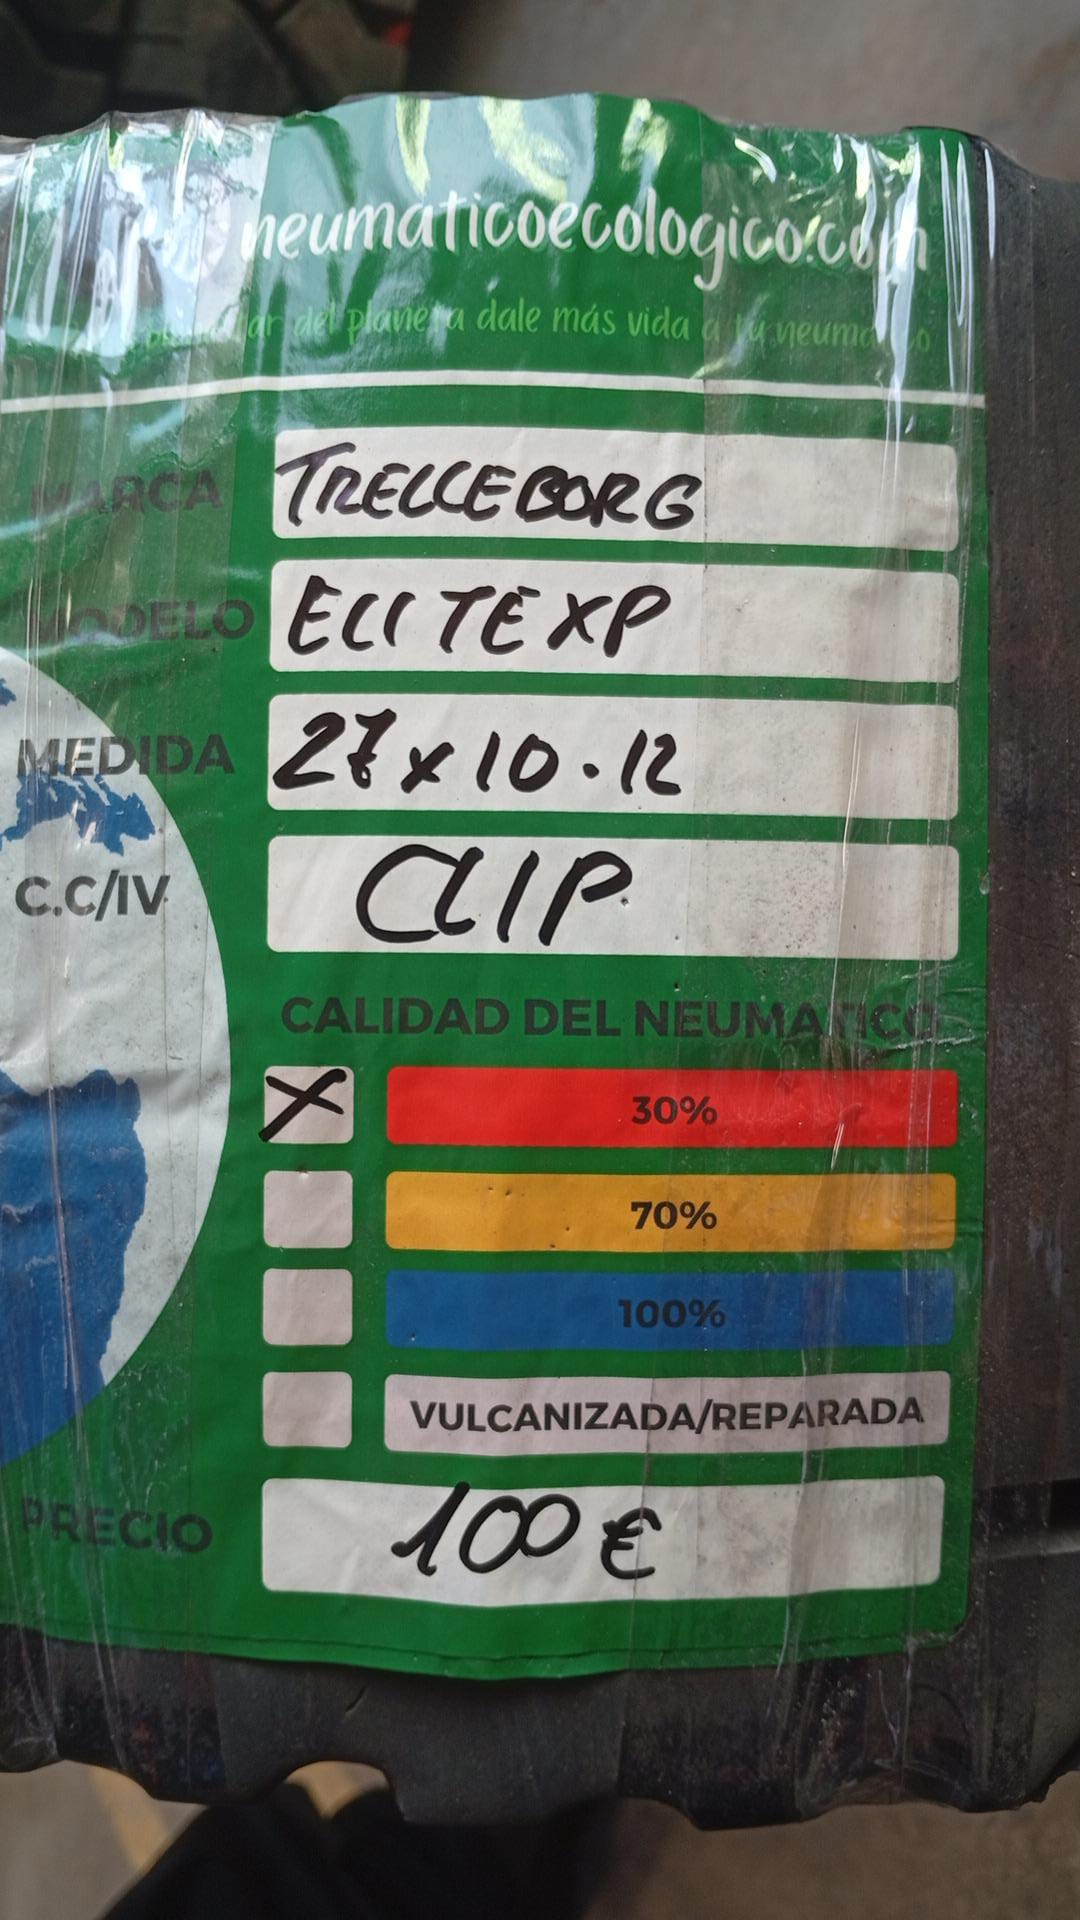 neumaticoecologico.com
del planeta dale más vida a tu neumático
MARCA TRELLEBORG
MODELO ELITE XP
MEDIDA 27x10.12
C.C/IV CLIP
CALIDAD DEL NEUMATICO
X 30%
70%
100%
VULCANIZADA/REPARADA
PRECIO 100 €